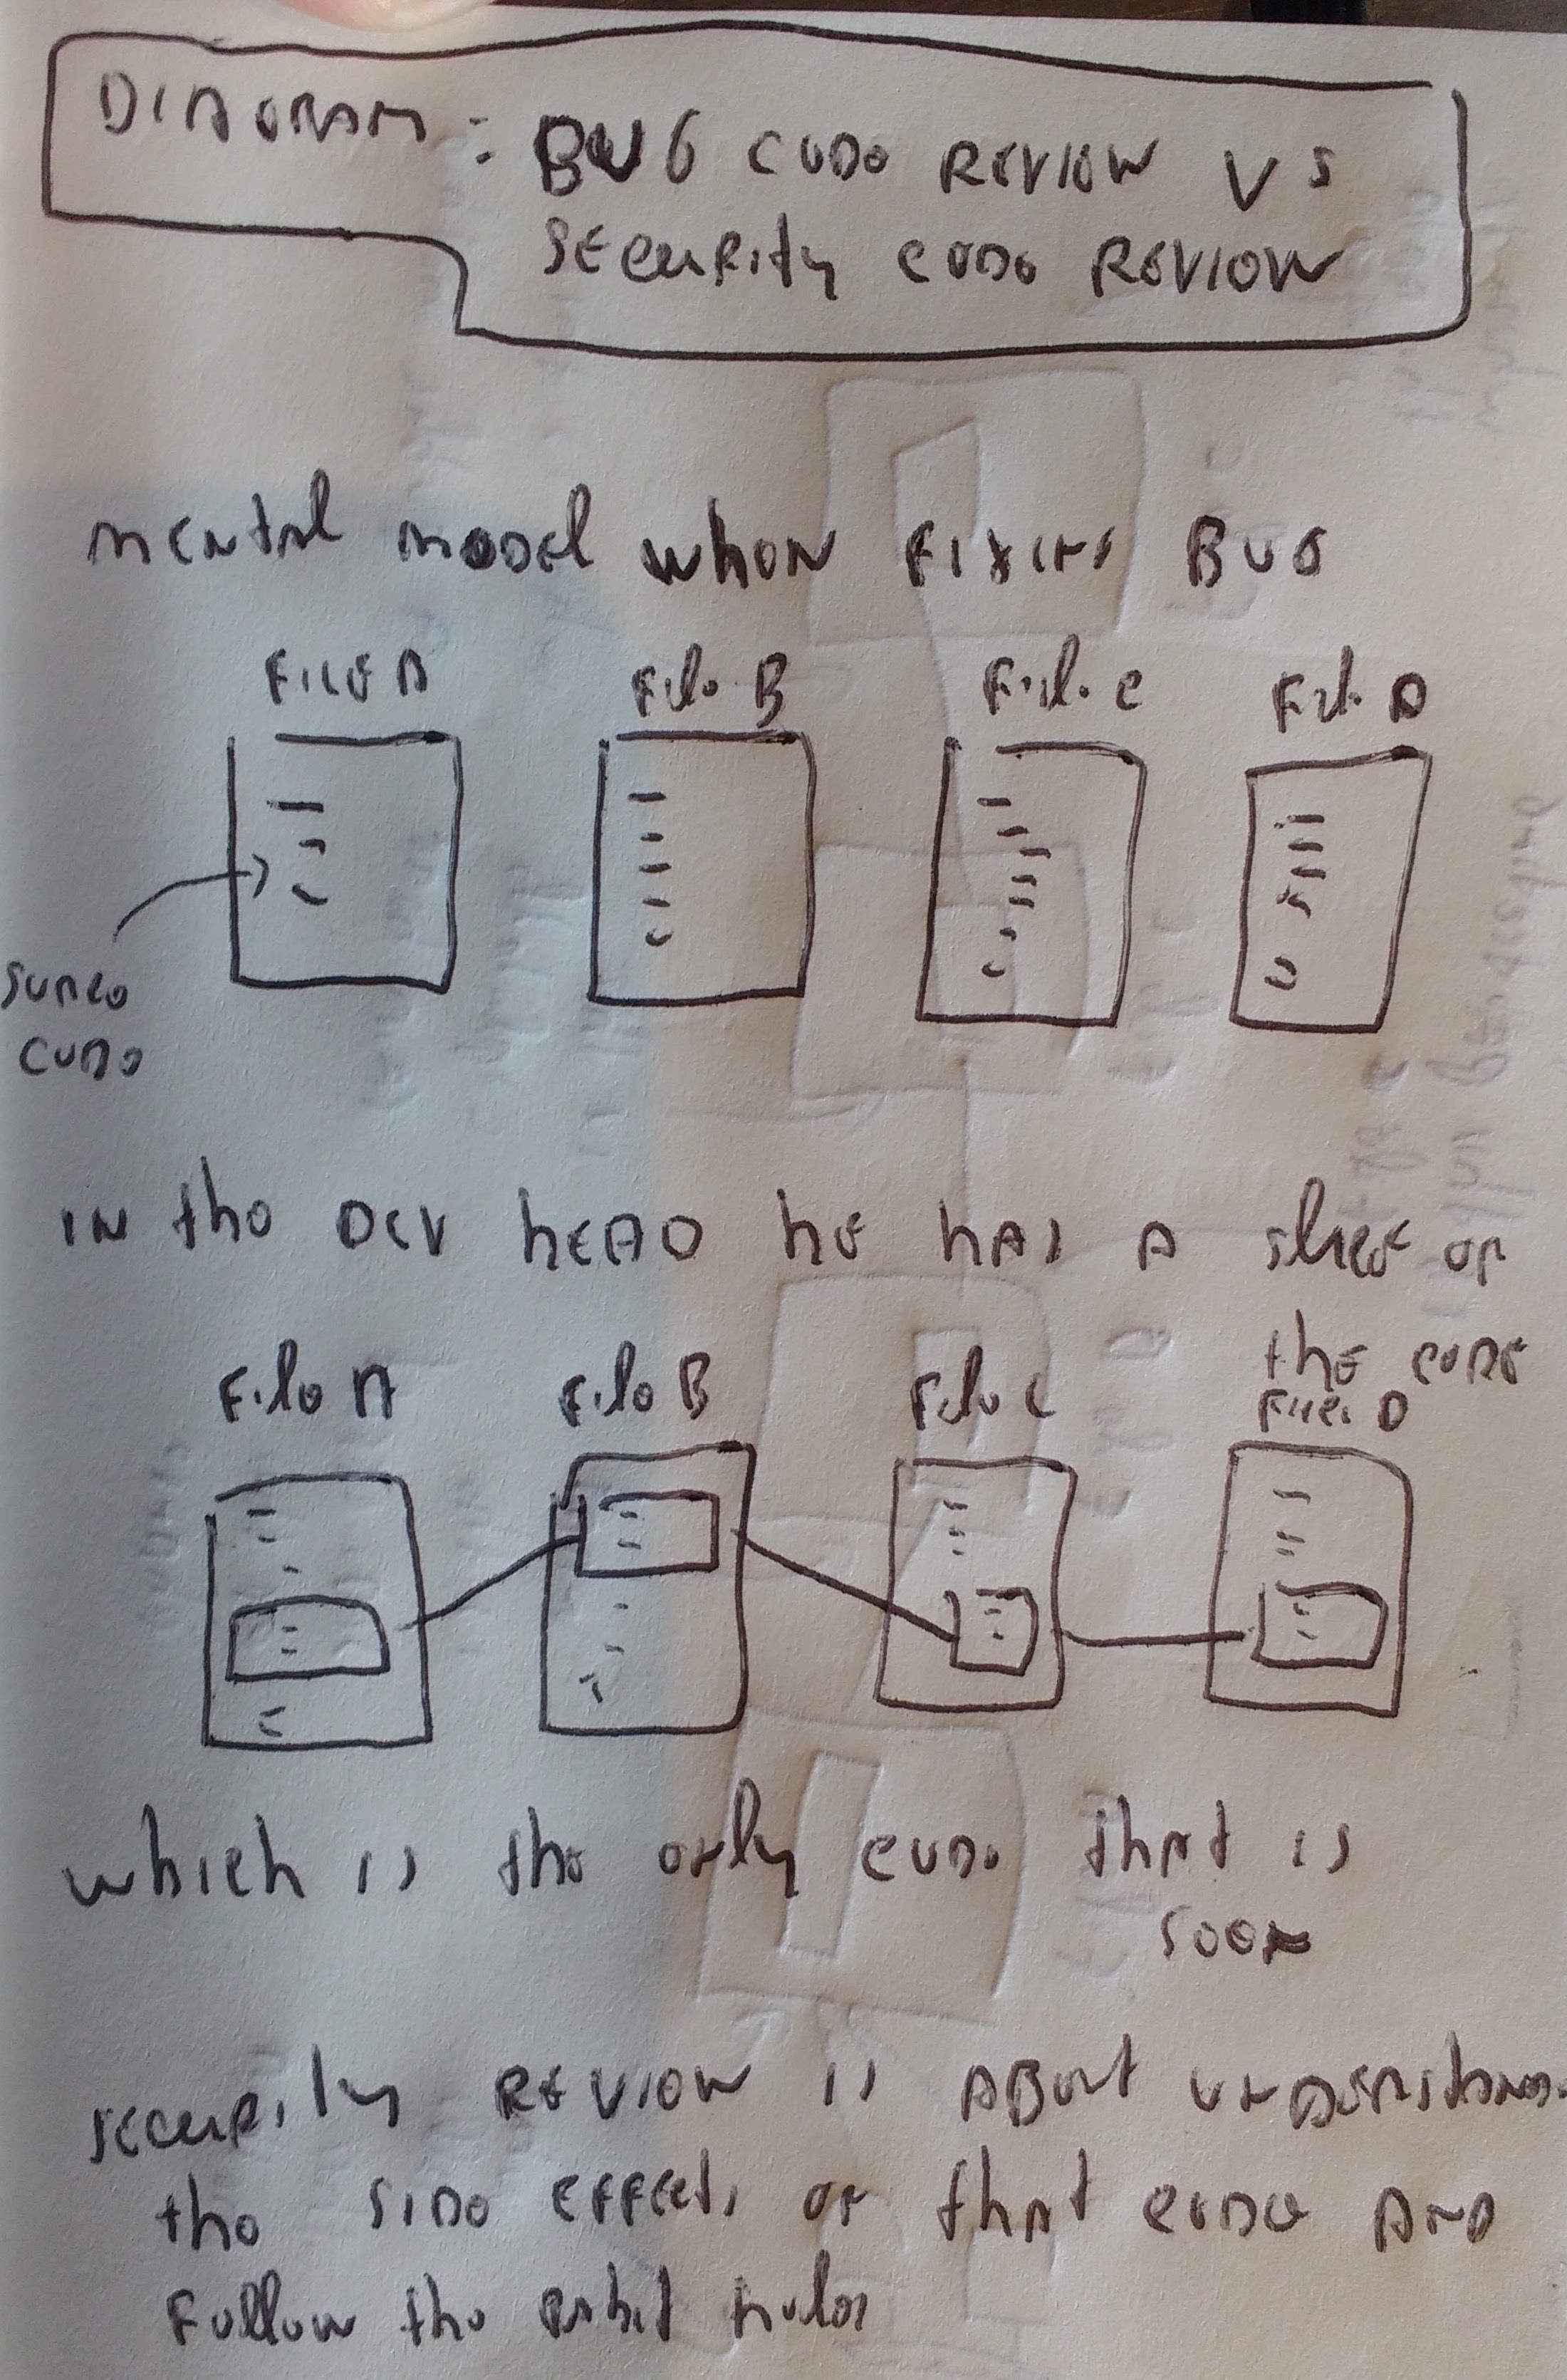 DIAGRAM: BUG CODE REVIEW VS
SECURITY CODE REVIEW
mental model when FIXING BUG
FILE A File B File C File D
SOURCE
CODE
IN the DEV HEAD HE HAS A slice OF
the CODE
File A File B File C File D
which is the only code that is
seen
security REVIEW is ABOUT UNDERSTAND
the SIDE EFFECTS OF that CODE AND
Follow the rabbit holes